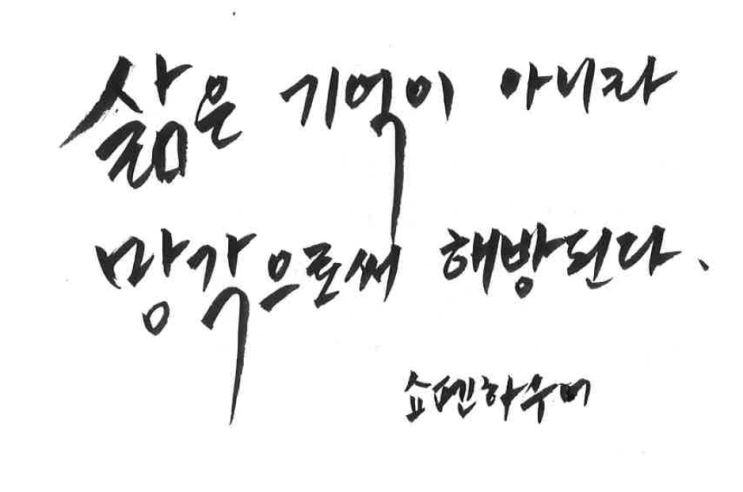 삶은 기억이 아니라
망각으로써 해방된다.
쇼펜하우어